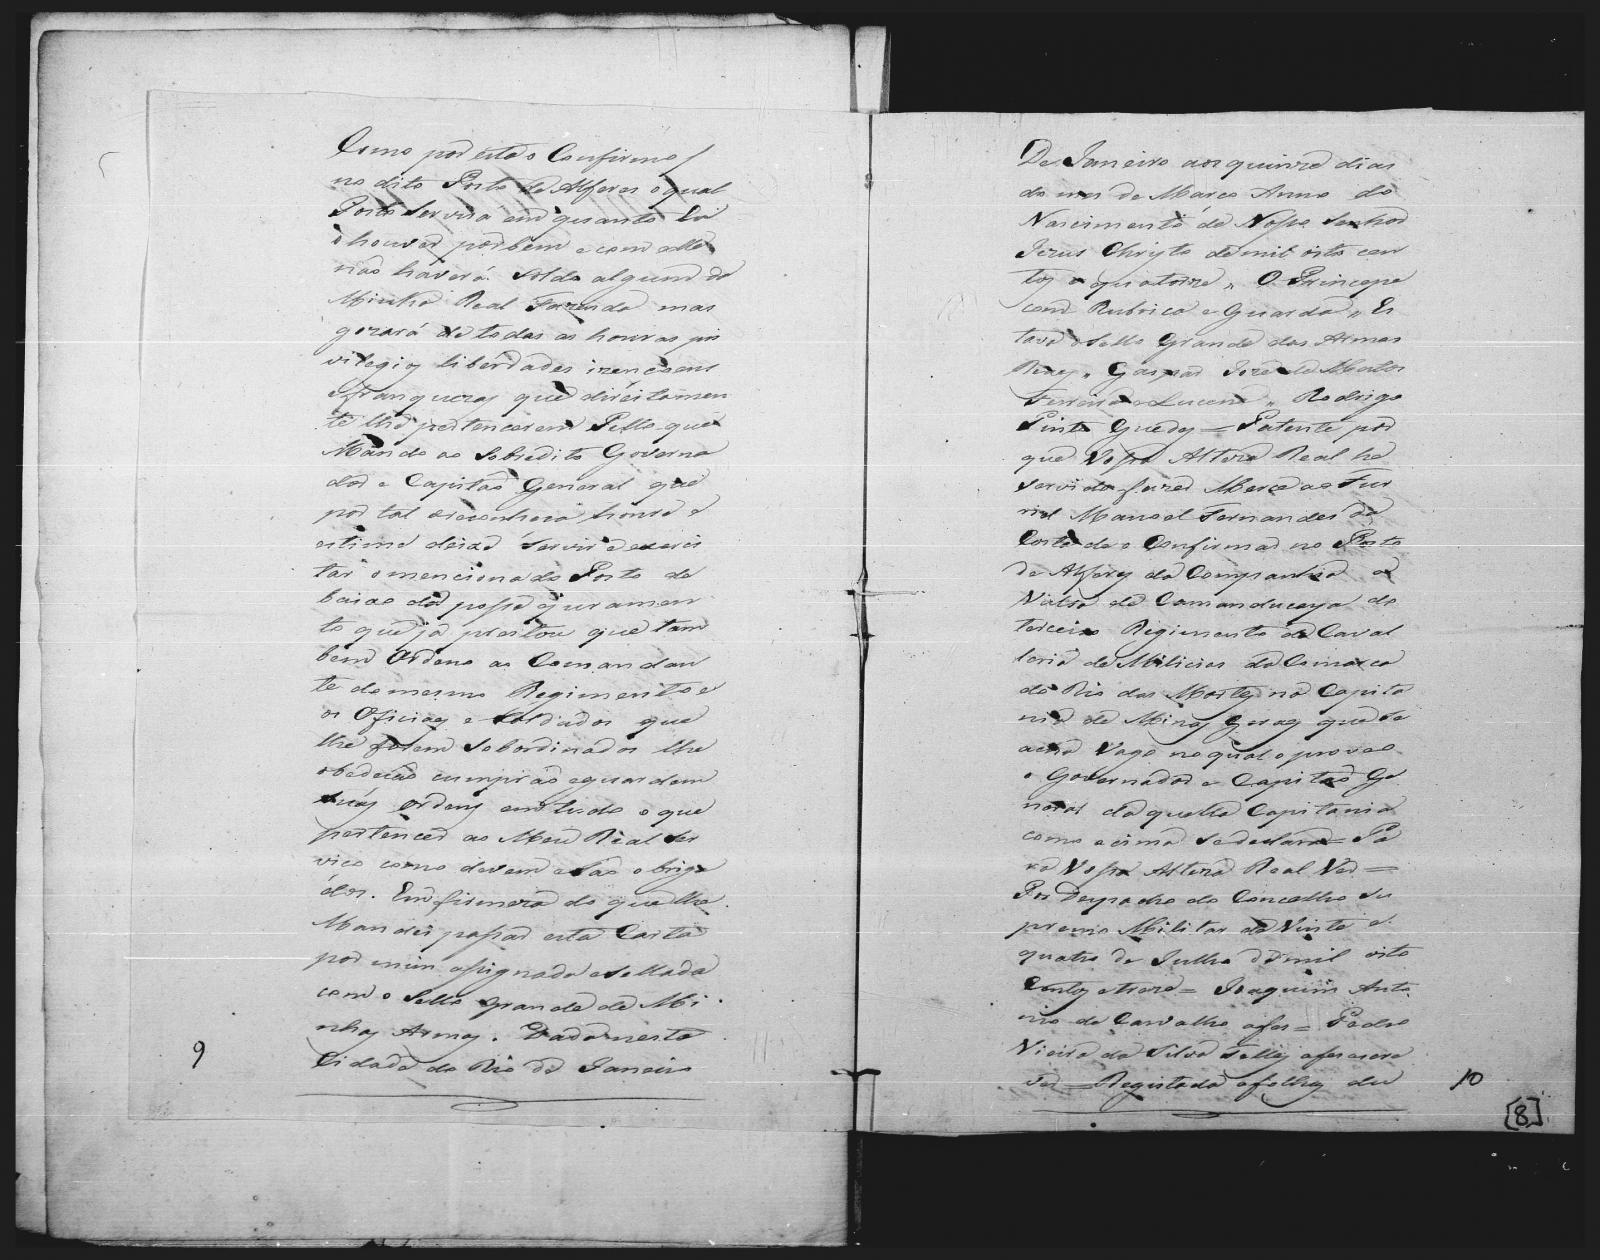 Como por esta o Confirmo /
no dito Posto de Alferes o qual
Posto servirá em quanto Eu
o houver por bem e com elle
não haverá soldo algum da
Minha Real Fazenda mas
gozará de todas as honras pri
vilegios liberdades izençoens
e franquezas que direitamen
te lhe pertencerem Pello que
Mando ao Sobredito Governa
dor e Capitão General que
por tal o reconheça honre e
estime deixe servir e exerci
tar o mencionado Posto de
baixo da posse e juramen
to que já prestou que tam
bem Ordeno ao Comandan
te do mesmo Regimento e
os Oficiaes e Soldados que
lhe forem Sobordinados lhe
obedeção cumprão e guardem
suas ordens em tudo o que
pertencer ao Meu Real Ser
viço como devem e são obriga
dos. Em firmeza do que lhe
Mandei passar esta Carta
por mim assignada e sellada
com o Sello grande de Mi
nhas Armas. Dada nesta
Cidade do Rio de Janeiro
9
De Janeiro aos quinze dias
do mes de Março Anno do
Nascimento de Nosso Senhor
Jezus Christo de mil oito cen
tos e quatorze „ O Principe
com Rubrica e Guarda „ Es
tava o Sello Grande das Armas
Reaes „ Gaspar José de Mattos
Ferreira e Lucena „ Rodrigo
Pinto Guedes = Patente por
que Vossa Alteza Real he
servido fazer Merce ao Fur
riel Manoel Fernandes da
Costa de o Confirmar no Posto
de Alferes da Companhia da
Villa de Camanducaya do
terceiro Regimento de Caval
laria de Milicias da Comarca
do Rio das Mortes na Capita
nia de Minas Geraes que se
acha Vago no qual o proveo
o Governador e Capitão Ge
neral da quella Capitania
como acima se declara = Pa
ra Vossa Alteza Real Ver =
Por Despacho do Concelho Su
premo Militar de Vinte e
quatro de Julho de mil oito
Centos e treze = Joaquim Anto
nio de Carvalho a fes = Pedro
Vieira da Silva Telles a fes escre
ver = Registada a folhas du
10
[8]